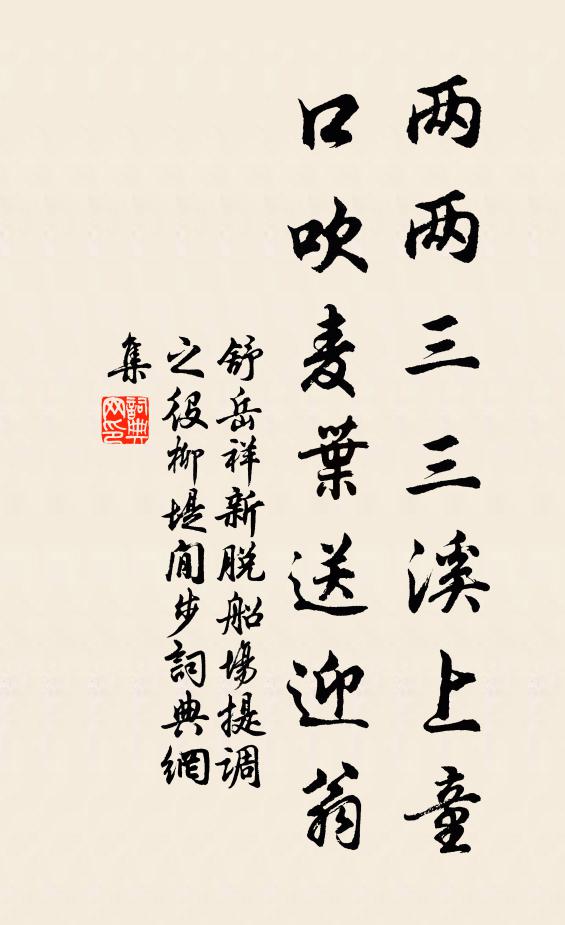 两两三三溪上童
口吹麦葉送迎翁
舒岳祥新脱船場提调
之役柳堤閒步詞典網
集
詞典
网印